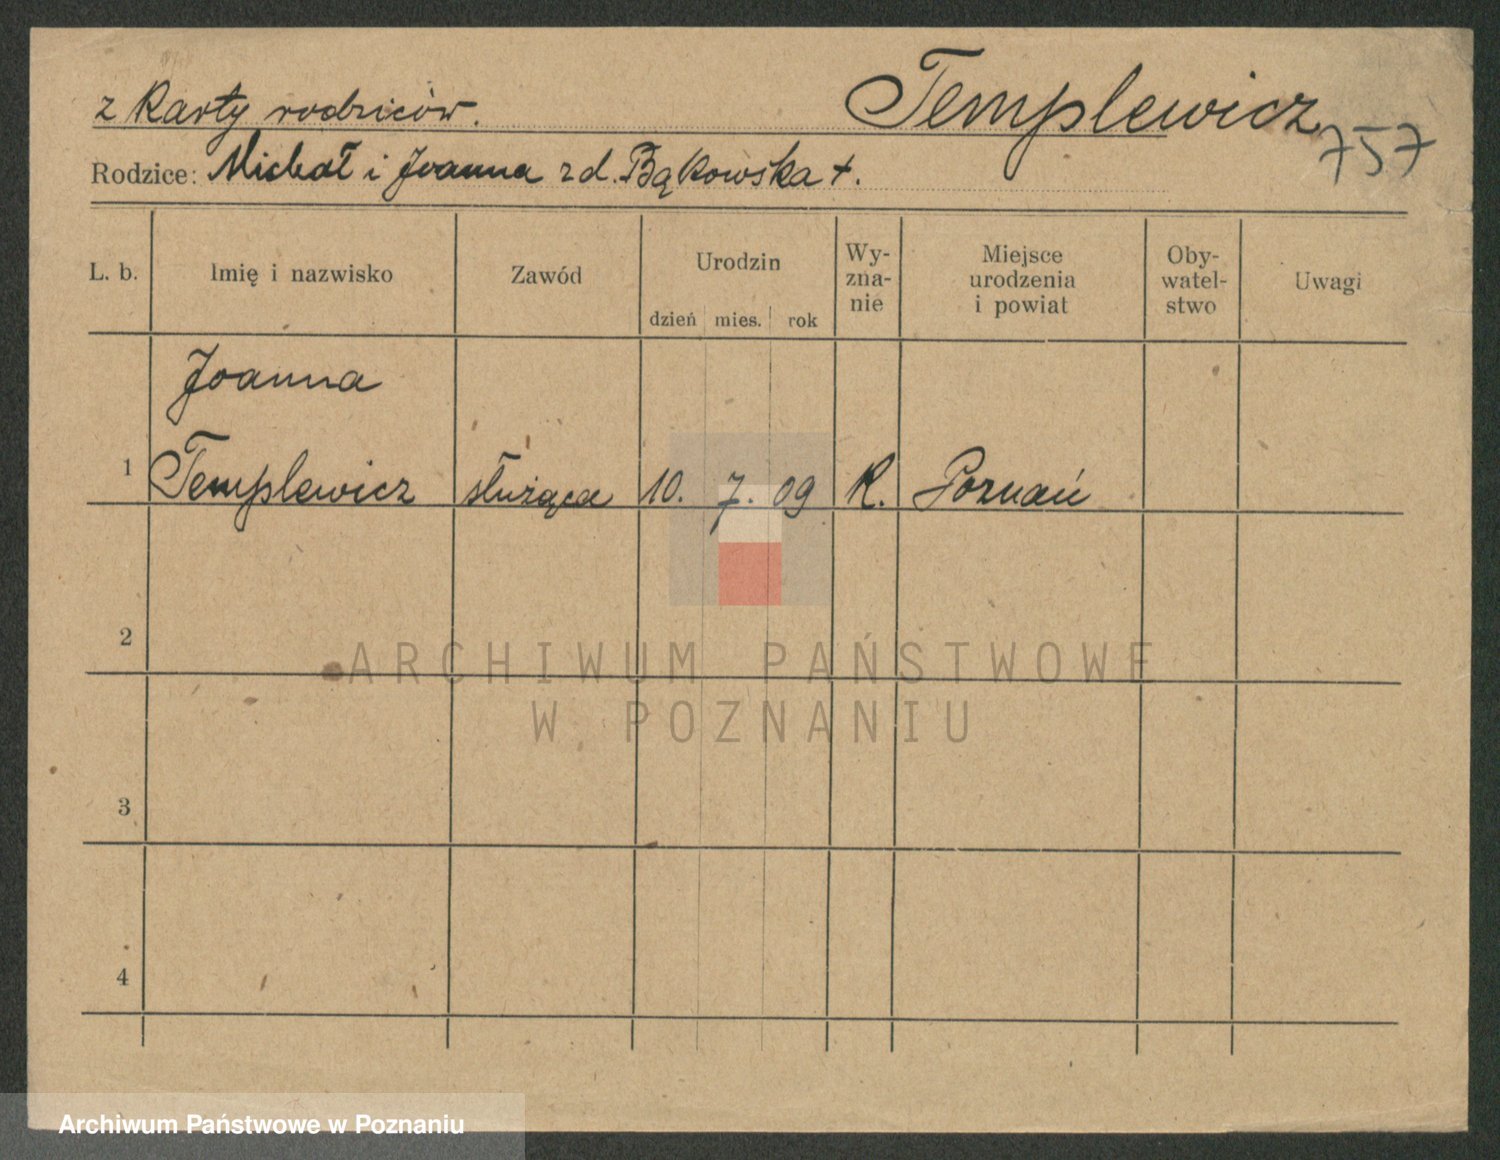 z Karty rodziców. Templewicz
757
Rodzice: Michał i Joanna z d. Bąkowska +.
L. b. Imię i nazwisko Zawód Urodzin Wy-zna-nie Miejsce urodzenia i powiat Oby-watel-stwo Uwagi
dzień mies. rok
Joanna
1 Templewicz służąca 10. 7. 09 R. Poznań
2
ARCHIWUM PAŃSTWOWE
W POZNANIU
3
4
Archiwum Państwowe w Poznaniu